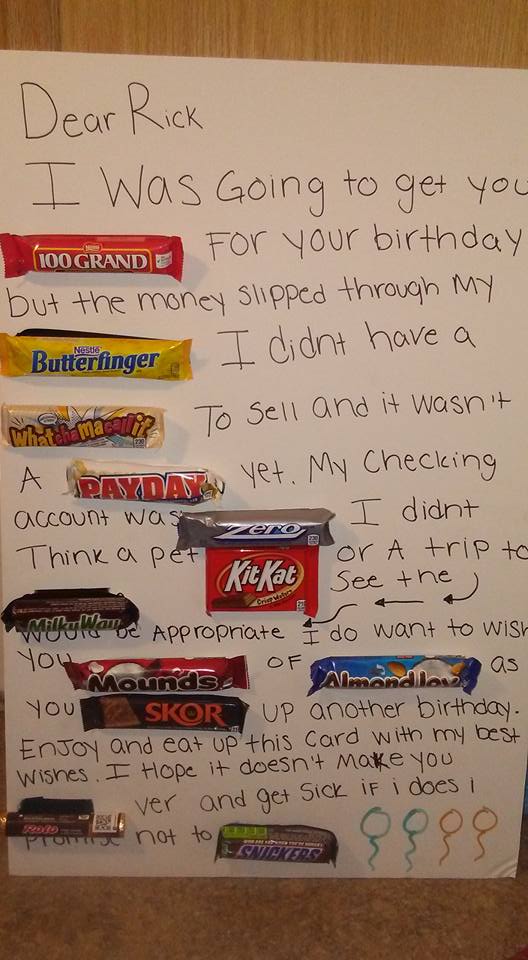 Dear Rick
I Was Going to get you
Nestle 100 GRAND For your birthday
but the money slipped through My
Nestle Butterfinger I didnt have a
Whatchamacallit To Sell and it wasn't
A PAYDAY yet. My Checking
account was Zero I didnt
Think a pet KitKat or A trip to
Crisp Wafers See the
MilkyWay
Would be Appropriate I do want to wish
You Mounds OF Almond Joy as
You SKOR UP another birthday.
Enjoy and eat up this card with my best
wishes. I Hope it doesn't make you
Rolo ver and get Sick if i does i
promise not to SNICKERS